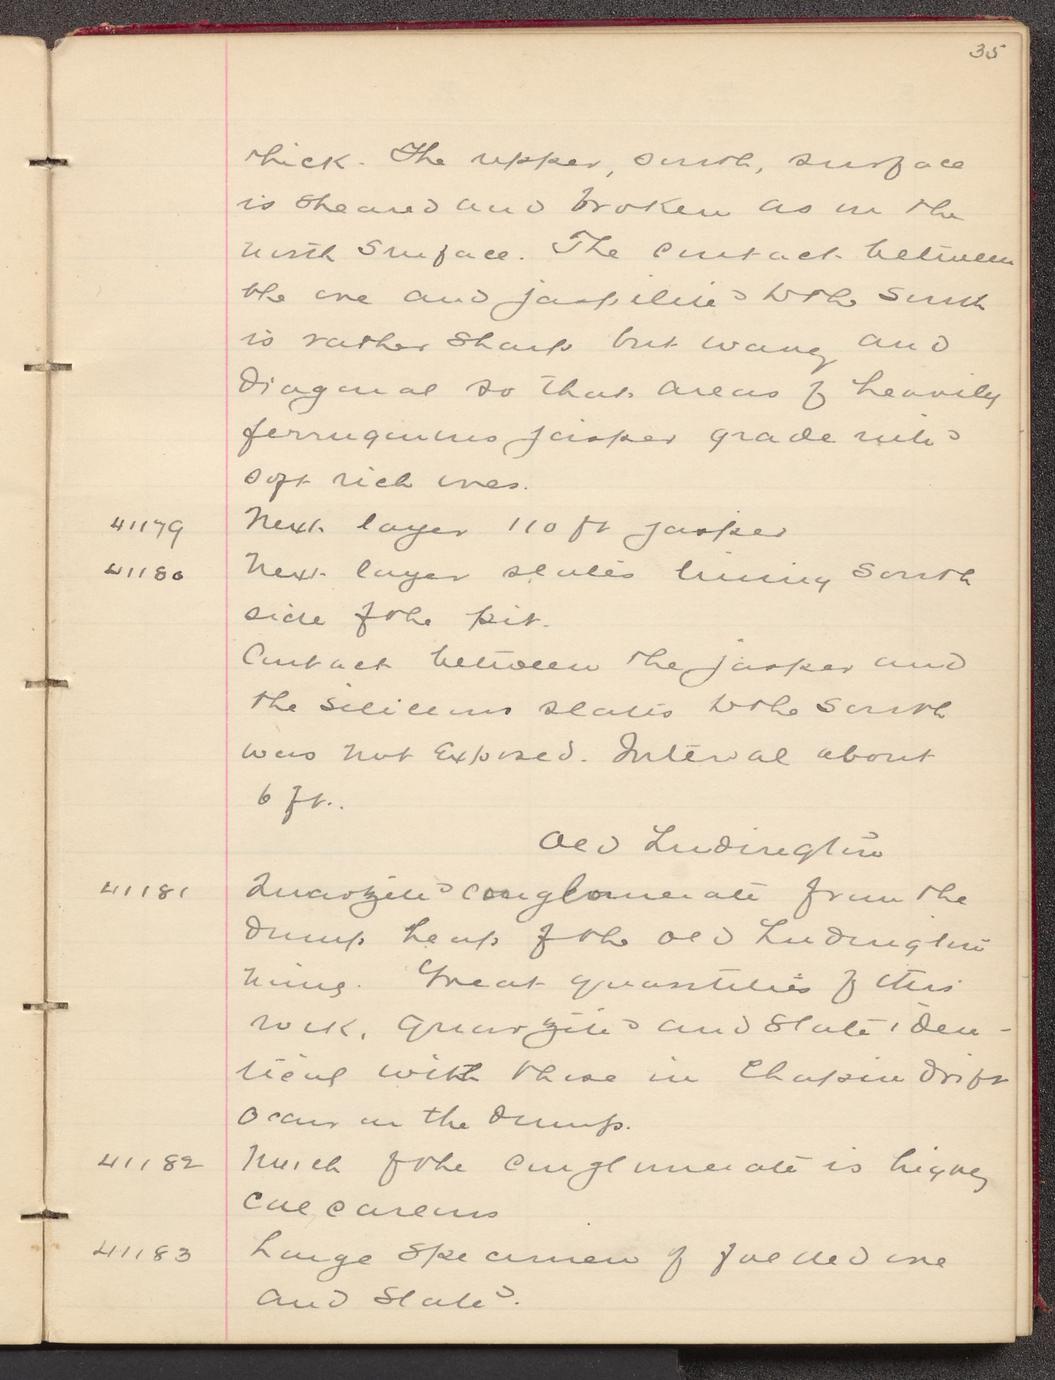 35
thick. The upper, south, surface
is sheared and broken as in the
north surface. The contact between
the ore and jaspilite to the south
is rather sharp but wavy and
diagonal so that areas of heavily
ferruginous jasper grade into
soft rich ores.
41179 Next layer 110 ft jasper
41180 Next layer slates lining south
side of the pit.
Contact between the jasper and
the siliceous slates to the South
was not Exposed. Interval about
6 ft.
Old Ludington
41181 Quartzite conglomerate from the
dump heap of the old Ludington
mine. Great quantities of this
rock, quartzite and slate iden-
tical with those in Chapin drift
occur on the dump.
41182 Much of the conglomerate is highly
calcareous
41183 Large specimen of folded ore
and slate.